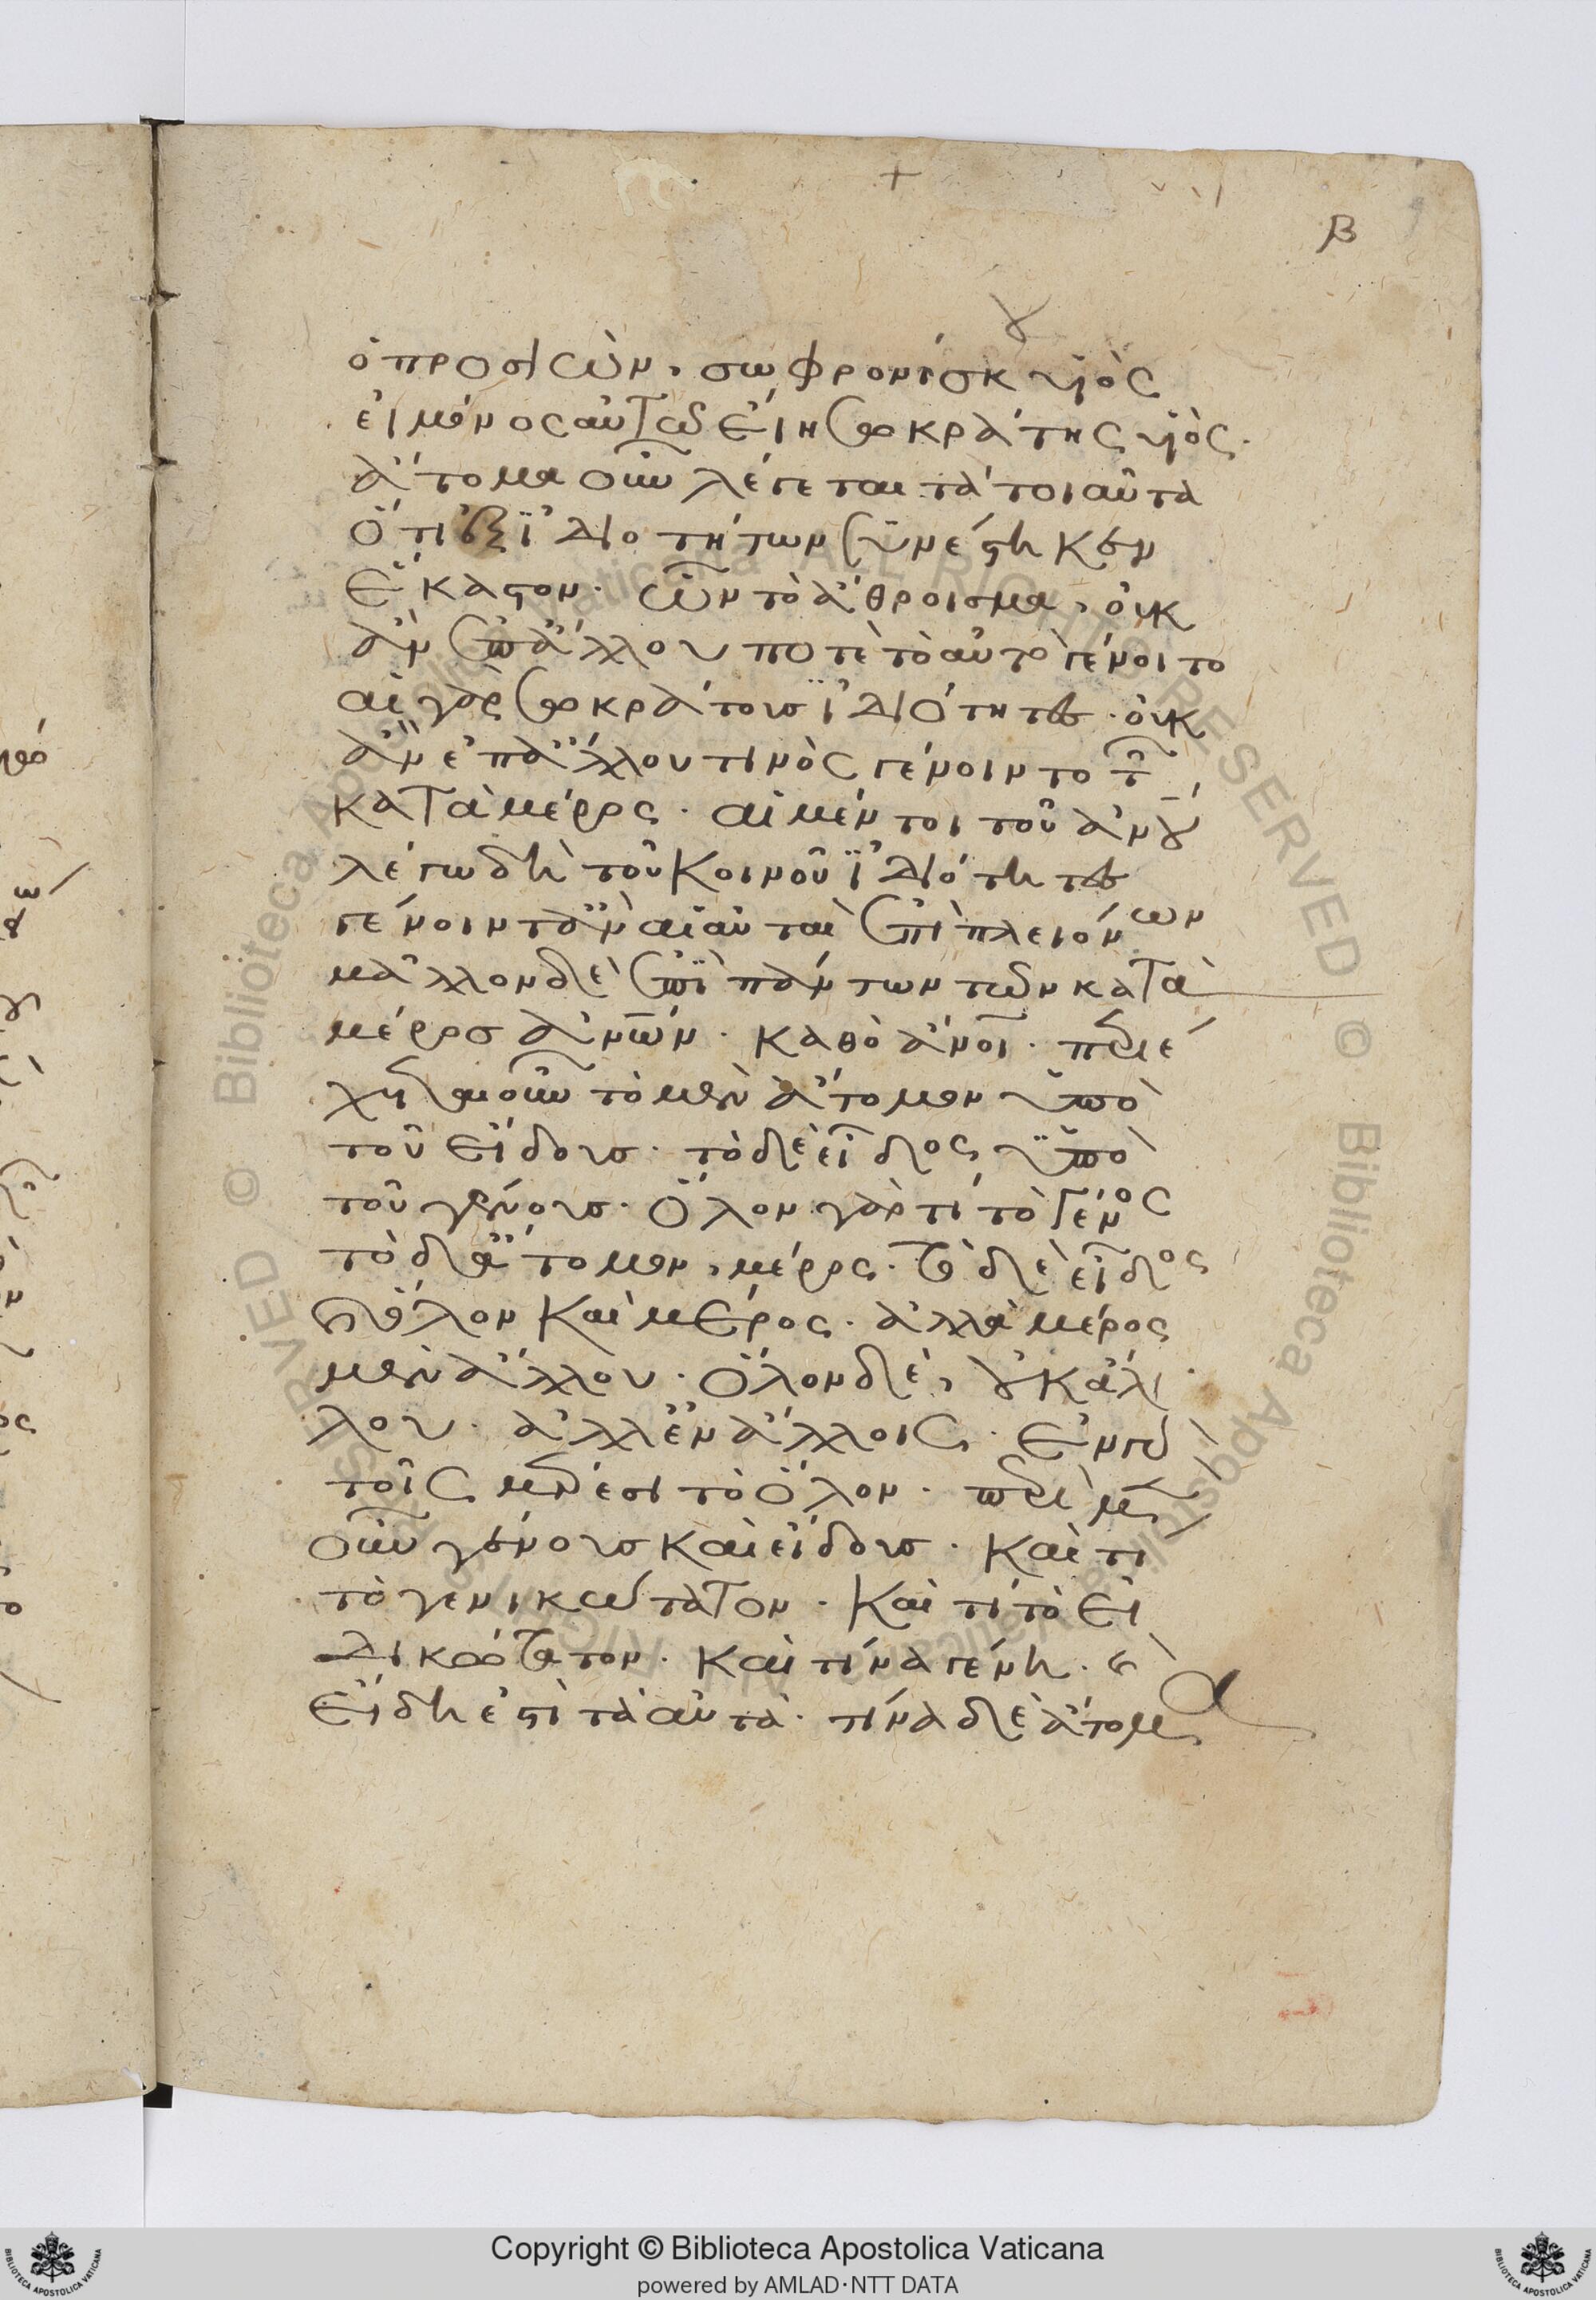 β
ὁ προσιών, σωφρονίσκου υἱὸς
εἰ μόνος αὐτῶ εἴη σωκράτης υἱός.
ἄτομα οὖν λέγεται τὰ τοιαῦτα
ὅτι ἐξ ἰδιοτήτων συνέστηκεν
ἕκαστον. ὧν τὸ ἄθροισμα, οὐκ
ἂν ἐπ' ἄλλου ποτὲ τὸ αὐτὸ γένοιτο
αἱ γὰρ σωκράτους ἰδιότητες. οὐκ
ἂν ἐπ' ἄλλου τινὸς γένοιντο τῶν
κατὰ μέρος. αἱ μέντοι τοῦ ἀνου
λέγω δὴ τοῦ κοινοῦ ἰδιότητες
γένοιντ' ἂν αἱ αὐταὶ ἐπὶ πλειόνων
μᾶλλον δὲ ἐπὶ πάντων τῶν κατὰ
μέρος ἀνων. καθὸ ἄνοι. περιέ
χεται οὖν τὸ μὲν ἄτομον ὑπὸ
τοῦ εἴδους. τὸ δὲ εἶδος ὑπὸ
τοῦ γένους. ὅλον γάρ τι τὸ γένος
τὸ δὲ ἄτομον, μέρος. τὸ δὲ εἶδος
καὶ ὅλον καὶ μέρος. ἀλλὰ μέρος
μὲν ἄλλου. ὅλον δὲ, οὐκ ἄλ
λου. ἀλλ' ἐν ἄλλοις. ἐν γὰρ
τοῖς μέρεσι τὸ ὅλον. περὶ μὲν
οὖν γένους καὶ εἴδους. καὶ τί
τὸ γενικώτατον. καὶ τί τὸ εἰ
δικώτατον. καὶ τίνα γένη. καὶ
εἴδη ἐστὶ τὰ αὐτά. τίνα δὲ ἄτομα
Copyright © Biblioteca Apostolica Vaticana
powered by AMLAD·NTT DATA